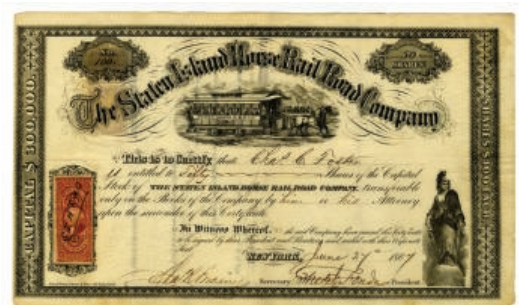 No.
100.
50
SHARES
The Staten Island Horse Rail Road Company
CAPITAL $ 300,000.
SHARES $100 EACH
This is to Certify that Chas. C. Foster
is entitled to Fifty Shares of the Capital
Stock of THE STATEN ISLAND HORSE RAIL ROAD COMPANY, transferable
only in the Books of the Company by him or his Attorney
upon the surrender of this Certificate.
In Witness Whereof, the said Company have caused this Certificate
to be signed by their President and Secretary and sealed with their
NEW YORK, June 27th 1867
Secretary
President